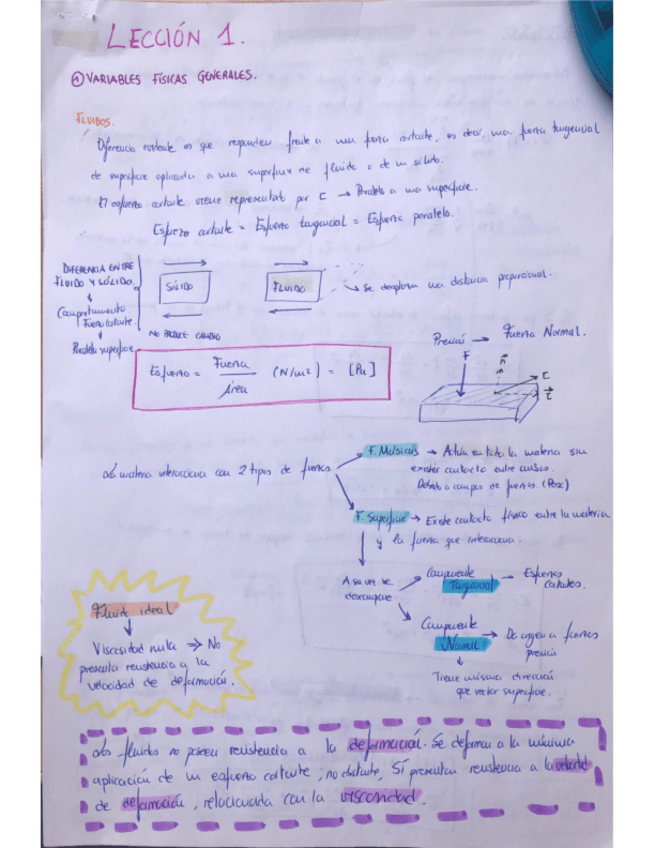 LECCIÓN 1.
① VARIABLES FÍSICAS GENERALES.
FLUIDOS.
Diferencia es que responden frente a una fuerza cortante, es decir, una fuerza tangencial
de superficie aplicada a una superficie de fluido o de un sólido.
El esfuerzo cortante viene representat por τ → Paralelo a una superficie.
Esfuerzo cortante = Esfuerzo tangencial = Esfuerzo paralelo.
DIFERENCIA ENTRE
FLUIDO Y SÓLIDO.
Comportamiento
Fuerza cortante
Paralela superficie
SÓLIDO
NO PRODUCE CAMBIO
FLUIDO
→ Se desplaza una distancia proporcional.
Esfuerzo = Fuerza / Área (N/m2) = [Pa]
Presión → Fuerza Normal.
F
n
τ
La materia interacciona con 2 tipos de fuerzas
F. Másicas → Actúa en toda la materia sin
existir contacto entre ambos.
Debido a campos de fuerzas. (Peso)
F. Superficie → Existe contacto físico entre la materia
y la fuerza que interacciona.
A su vez se
descompone
Componente
Tangencial → Esfuerzos
cortantes.
Componente
Normal → De origen a fuerzas
presión
Tiene misma dirección
que vector superficie.
Fluido ideal
Viscosidad nula ⇒ No
presenta resistencia a la
velocidad de deformación.
Los fluidos no poseen resistencia a la deformación. Se deforman a la mínima
aplicación de un esfuerzo cortante, no obstante, SÍ presentan resistencia a la velocidad
de deformación, relacionada con la viscosidad.